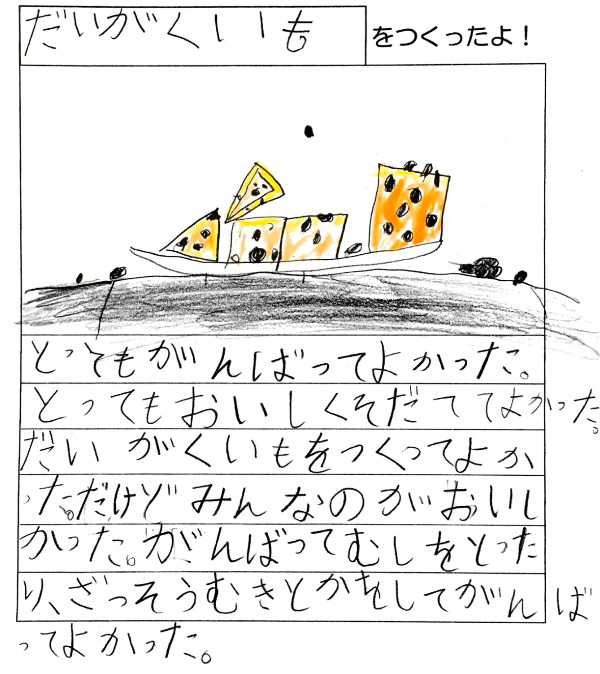 だいがくいも をつくったよ!
とってもがんばってよかった。
とってもおいしくそだててよかった。
だいがくいもをつくってよか
った。だけど みんなのがおいし
かった。がんばってむしをとった
り、ざっそうむきとかをしてがんば
ってよかった。